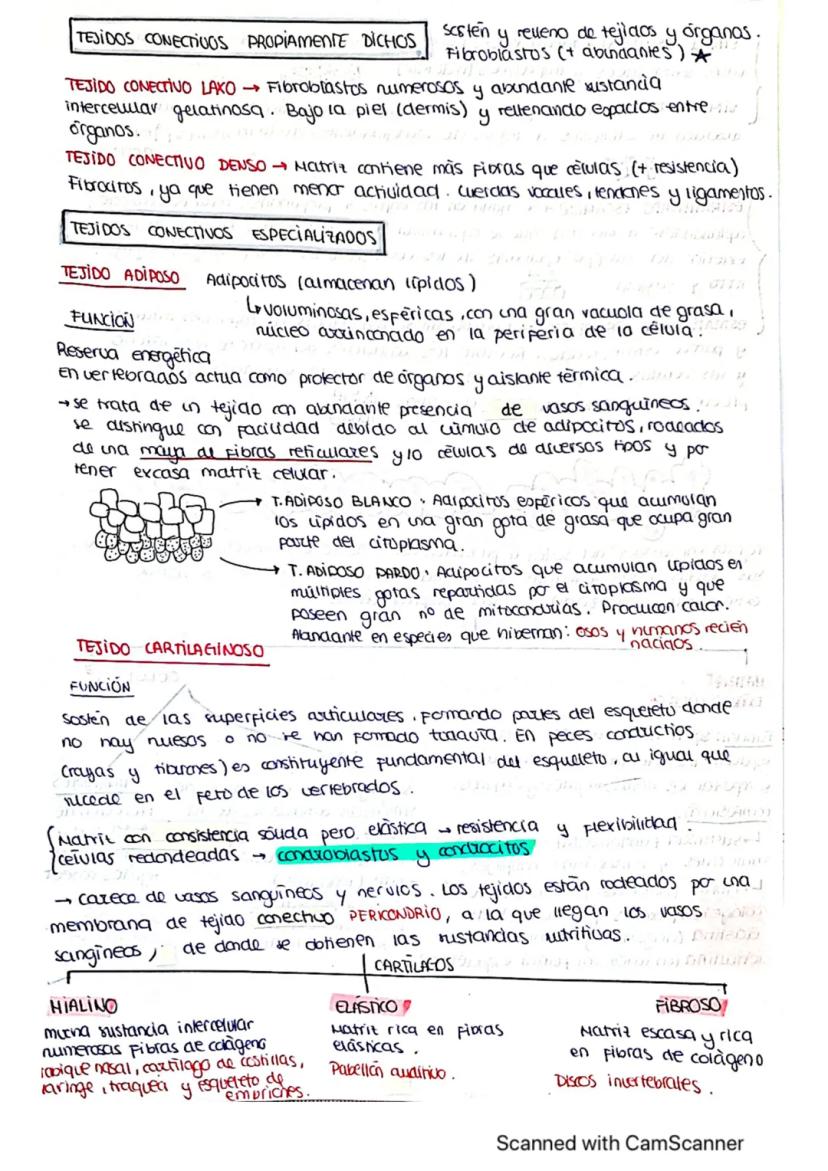 TEJIDOS CONECTIVOS PROPIAMENTE DICHOS
Sostén y relleno de tejidos y órganos.
Fibroblastos (+ abundantes) ★
TEJIDO CONECTIVO LAXO → Fibroblastos numerosos y abundante sustancia
intercelular gelatinosa. Bajo la piel (dermis) y rellenando espacios entre
órganos.
TEJIDO CONECTIVO DENSO → Matriz contiene más fibras que células (+ resistencia)
Fibrocitos, ya que tienen menor actividad. Cuerdas vocales, tendones y ligamentos.
TEJIDOS CONECTIVOS ESPECIALIZADOS
TEJIDO ADIPOSO Adipocitos (almacenan lípidos)
↳ voluminosas, esféricas, con una gran vacuola de grasa,
núcleo arrinconado en la periferia de la célula.
FUNCIÓN
Reserva energética
en vertebrados actua como protector de órganos y aislante térmica.
→ se trata de un tejido con abundante presencia de vasos sanguíneos.
se distingue con facilidad debido al cúmulo de adipocitos, rodeados
de una maya de fibras reticulares y/o células de diversos tipos y por
tener excasa matriz celular.
→ T. ADIPOSO BLANCO: Adipocitos esféricos que acumulan
los lípidos en una gran gota de grasa que ocupa gran
parte del citoplasma.
→ T. ADIPOSO PARDO: Adipocitos que acumulan lípidos en
múltiples gotas repartidas por el citoplasma y que
poseen gran nº de mitocondrias. Producen calor.
Abundante en especies que hibernan: osos y humanos recién
nacidos.
TEJIDO CARTILAGINOSO
FUNCIÓN
Sostén de las superficies articulares, formando partes del esqueleto donde
no hay huesos o no se han formado todavía. En peces conductios
(rayas y tiburones) es constituyente fundamental del esqueleto, al igual que
sucede en el feto de los vertebrados.
Matriz con consistencia sólida pero elástica → resistencia y flexibilidad.
células redondeadas → condroblastos y condrocitos
→ carece de vasos sanguíneos y nervios. Los tejidos están rodeados por una
membrana de tejido conectivo PERICONDRIO, a la que llegan los vasos
sangíneos, de donde se obtienen las sustancias nutritivas.
CARTÍLAGOS
HIALINO
mucha sustancia intercelular
numerosas fibras de colágeno
tabique nasal, cartílago de costillas,
laringe, traquea y esqueleto de
embriones.
ELÁSTICO
Matriz rica en fibras
elásticas.
Pabellón auditivo.
FIBROSO
Matriz escasa y rica
en fibras de colágeno
Discos invertebrales.
Scanned with CamScanner